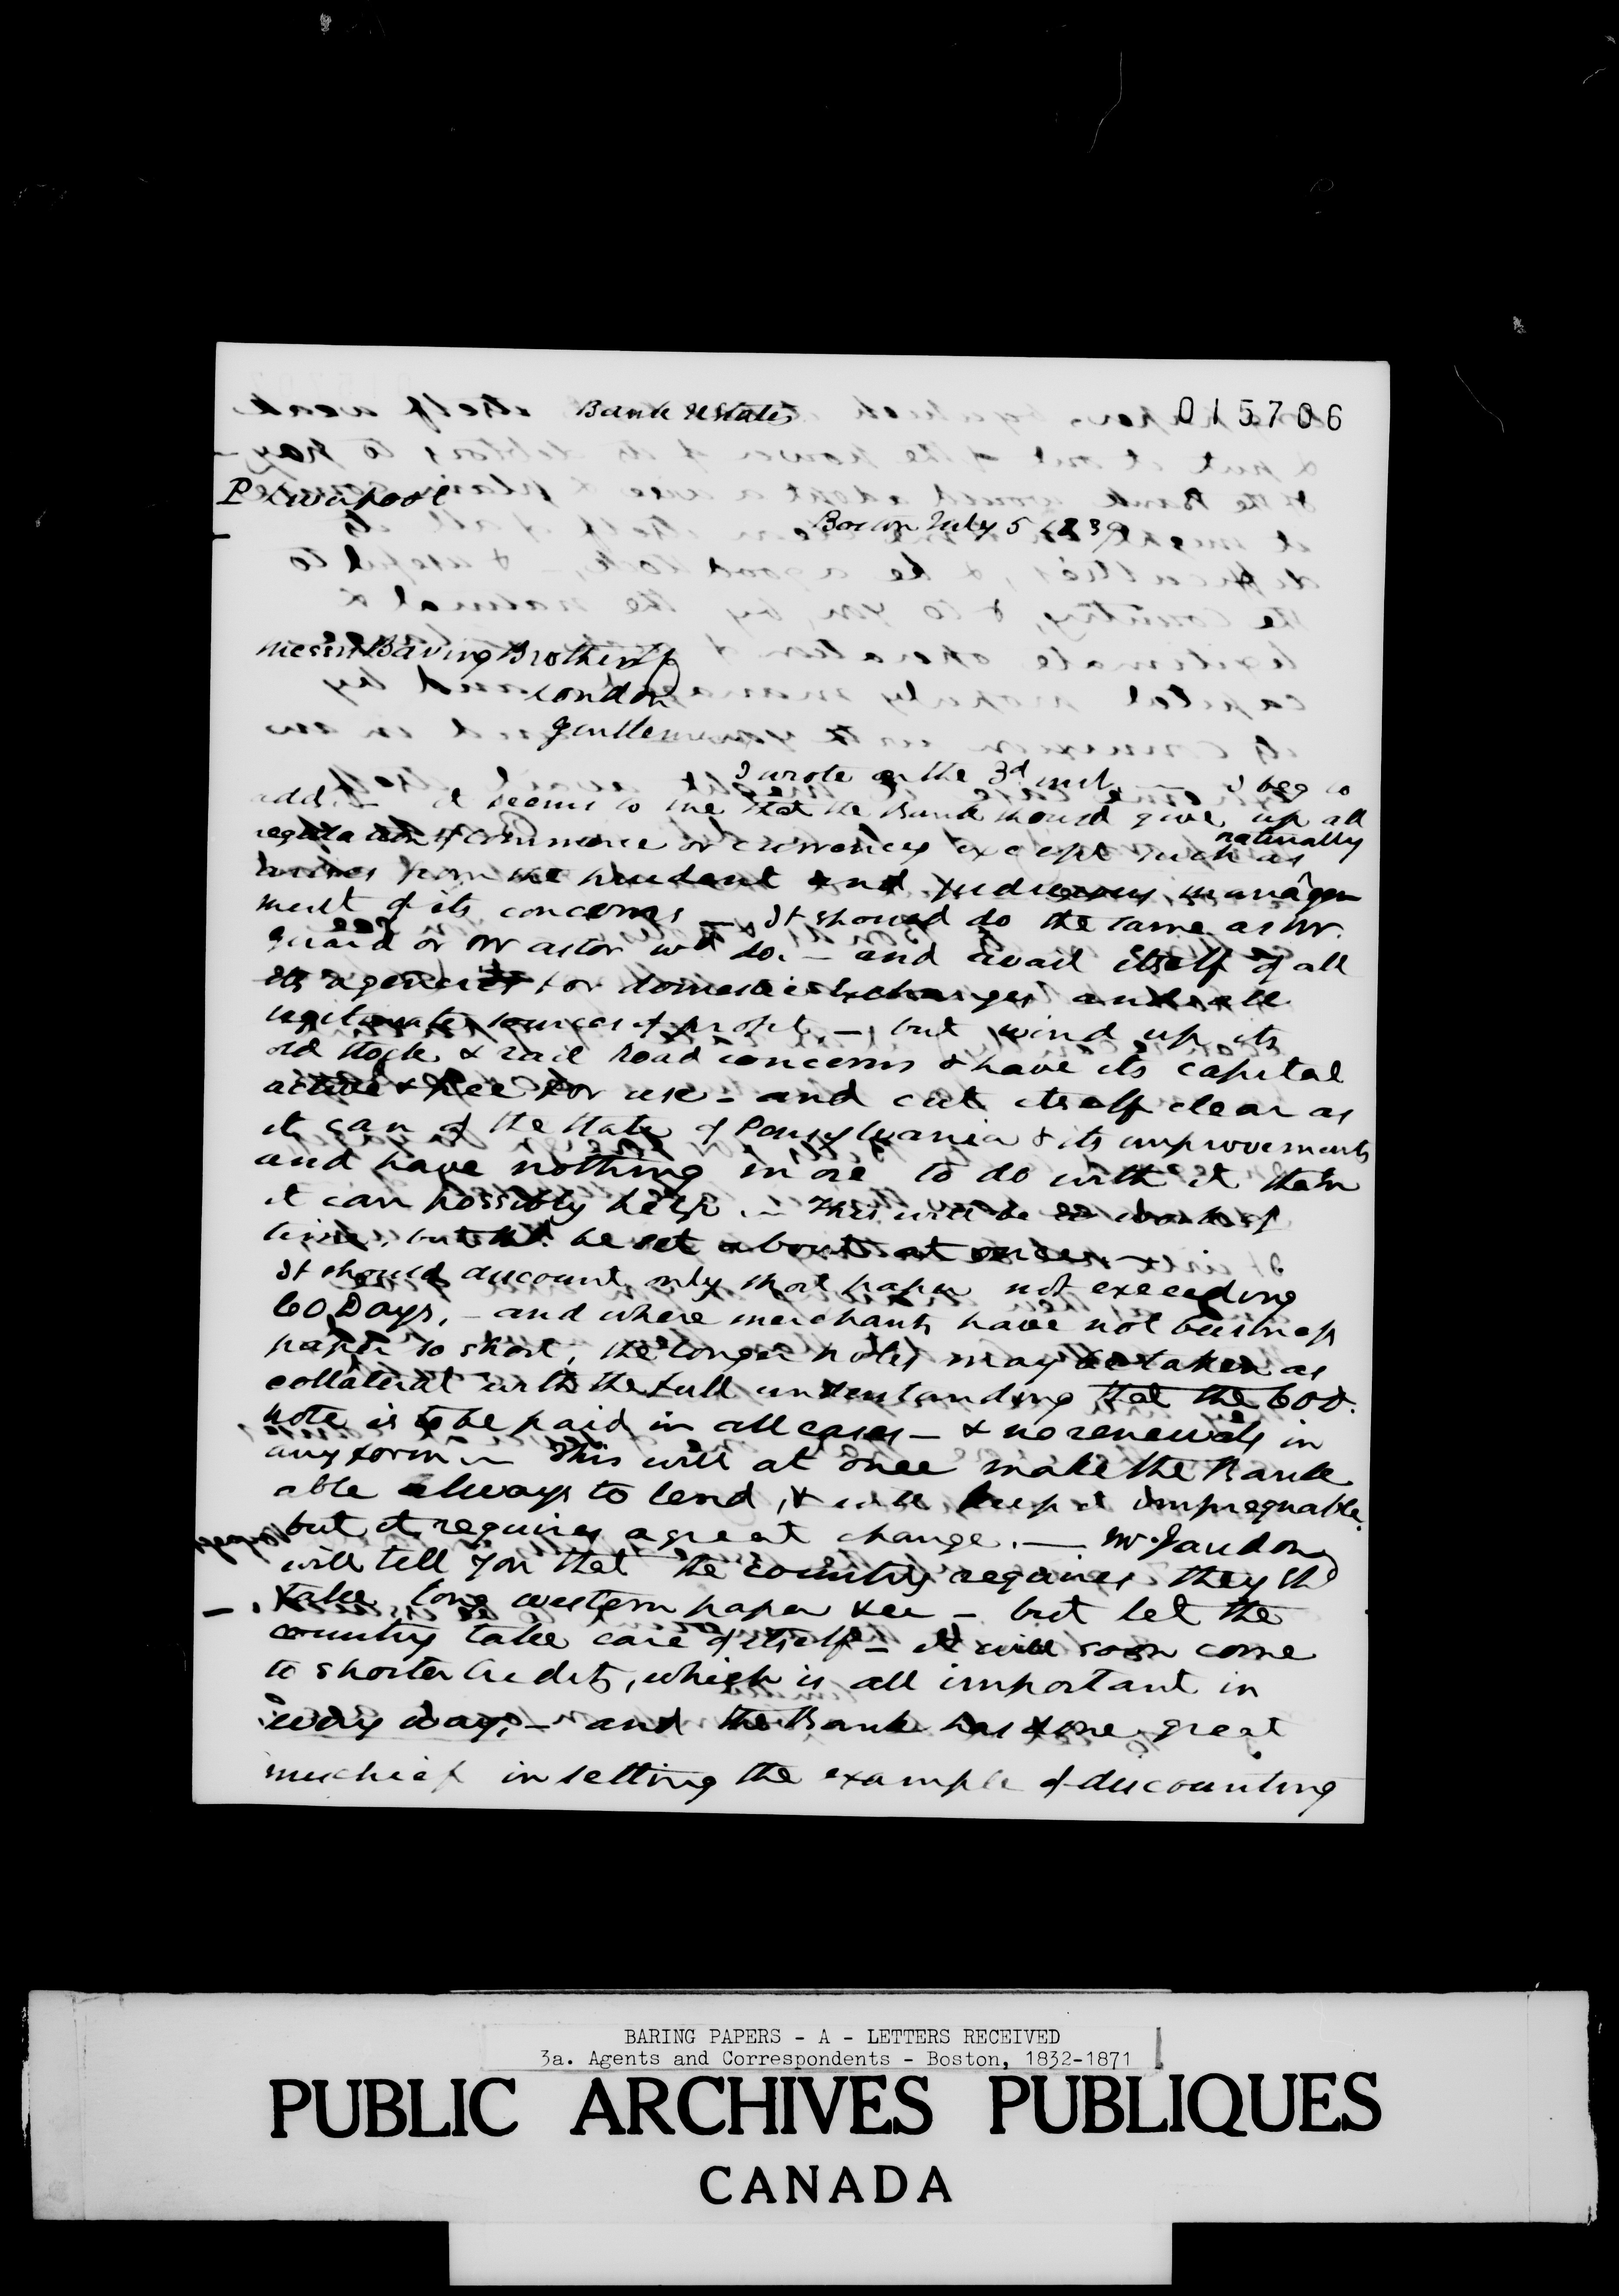 Bank U States
015706
P Liverpool
Boston July 5 1839
Messrs Baring Brothers
London
Gentlemen
I wrote on the 3d inst. — I beg to
add. — it seems to me that the Bank should give up all
regulation of commerce or currencies except such as naturally
arises from the prudent and judicious manage
ment of its concerns — It should do the same as Mr.
Girard or Mr Astor wd do. — and avail itself of all
its agencies for domestic Exchanges and all
legitimate sources of profit, — but wind up its
old Stock & rail Road concerns & have its capital
active & free for use — and cut itself clear as
it can of the State of Pensylvania & its improvements
and have nothing more to do with it than
it can possibly help. — This will be a work of
time, but be set about at once —
It should discount only short paper not exceeding
60 Days, — and where merchants have not business
paper so short, the longer notes may be taken as
collateral with the full understanding that the 60 d.
note is to be paid in all cases — & no renewals in
any form — This will at once make the Bank
able always to lend, & will keep it impregnable.
but it requires a great change. — Mr. Jaudon
will tell you that the country requires they shd
take long western paper &c — but let the
country take care of itself — it will soon come
to shorter credits, which is all important in
every way, — and the Bank has done great
mischief in setting the example of discounting
BARING PAPERS - A - LETTERS RECEIVED
3a. Agents and Correspondents - Boston, 1832-1871
PUBLIC ARCHIVES PUBLIQUES
CANADA